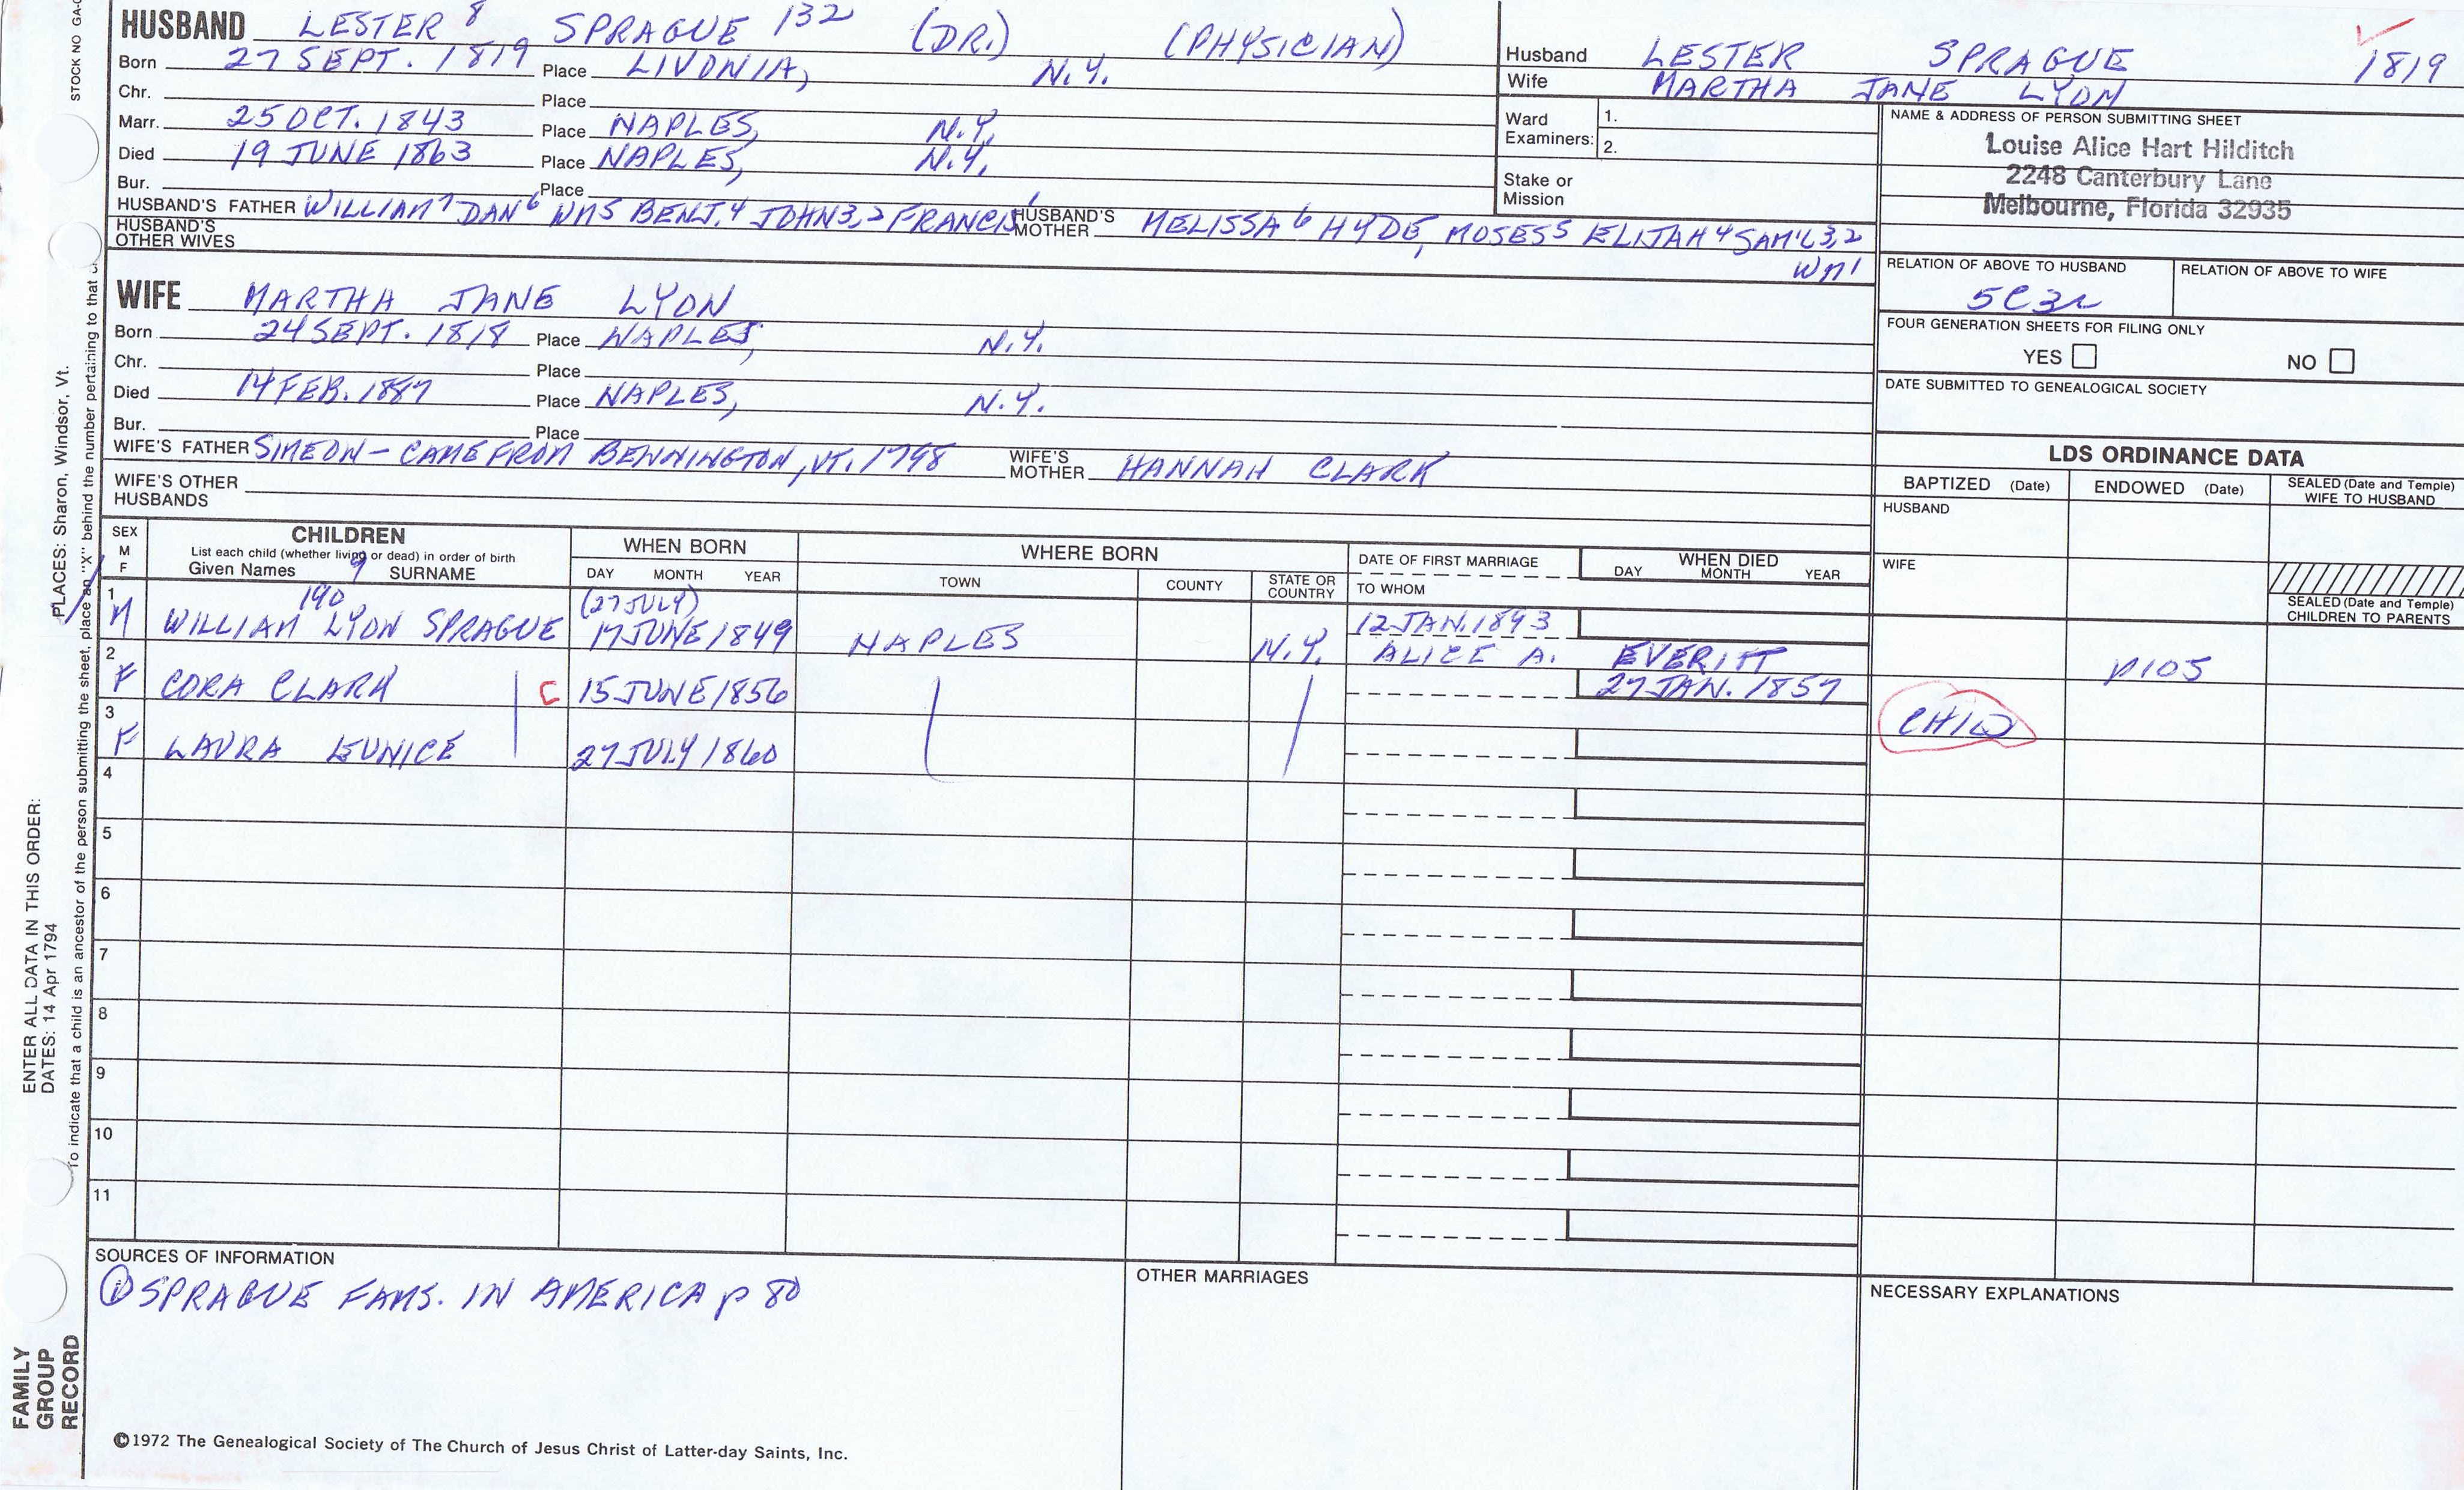 STOCK NO GA-
HUSBAND LESTER 8 SPRAGUE 132 (DR.) (PHYSICIAN)
Born 27 SEPT. 1819 Place LIVONIA, N.Y.
Chr. Place
Marr. 25 OCT. 1843 Place NAPLES, N.Y.
Died 19 JUNE 1863 Place NAPLES, N.Y.
Bur. Place
HUSBAND'S FATHER WILLIAM 7 DAN 6 WM 5 BENJ. 4 JOHN 3,2 FRANCIS 1 HUSBAND'S MOTHER MELISSA 6 HYDE, MOSES 5 ELIJAH 4 SAM'L 3,2
WM 1
HUSBAND'S OTHER WIVES
Husband LESTER SPRAGUE 1819
Wife MARTHA JANE LYON
Ward Examiners: 1.
2.
Stake or Mission
NAME & ADDRESS OF PERSON SUBMITTING SHEET
Louise Alice Hart Hilditch
2248 Canterbury Lane
Melbourne, Florida 32935
RELATION OF ABOVE TO HUSBAND RELATION OF ABOVE TO WIFE
5C3R
FOUR GENERATION SHEETS FOR FILING ONLY
YES NO
DATE SUBMITTED TO GENEALOGICAL SOCIETY
WIFE MARTHA JANE LYON
Born 24 SEPT. 1818 Place NAPLES, N.Y.
Chr. Place
Died 14 FEB. 1887 Place NAPLES, N.Y.
Bur. Place
WIFE'S FATHER SIMEON - CAME FROM BENNINGTON, VT. 1798 WIFE'S MOTHER HANNAH CLARK
WIFE'S OTHER HUSBANDS
LDS ORDINANCE DATA
BAPTIZED (Date) ENDOWED (Date) SEALED (Date and Temple) WIFE TO HUSBAND
HUSBAND
WIFE
SEALED (Date and Temple) CHILDREN TO PARENTS
SEX M F
CHILDREN
List each child (whether living or dead) in order of birth
Given Names 9 SURNAME
WHEN BORN
DAY MONTH YEAR
WHERE BORN
TOWN COUNTY STATE OR COUNTRY
DATE OF FIRST MARRIAGE
TO WHOM
WHEN DIED
DAY MONTH YEAR
1 190 (27 JULY) 12 JAN. 1893
M WILLIAM LYON SPRAGUE 17 JUNE 1849 NAPLES N.Y. ALICE A. EVERITT p105
2
F CORA CLARK C 15 JUNE 1856 27 JAN. 1857 CHILD
3
F LAURA EUNICE 27 JULY 1860
4
5
6
7
8
9
10
11
SOURCES OF INFORMATION
① SPRAGUE FAMS. IN AMERICA p 80
OTHER MARRIAGES
NECESSARY EXPLANATIONS
©1972 The Genealogical Society of The Church of Jesus Christ of Latter-day Saints, Inc.
FAMILY GROUP RECORD
ENTER ALL DATA IN THIS ORDER:
DATES: 14 Apr 1794
PLACES: Sharon, Windsor, Vt.
To indicate that a child is an ancestor of the person submitting the sheet, place an "X" behind the number pertaining to that